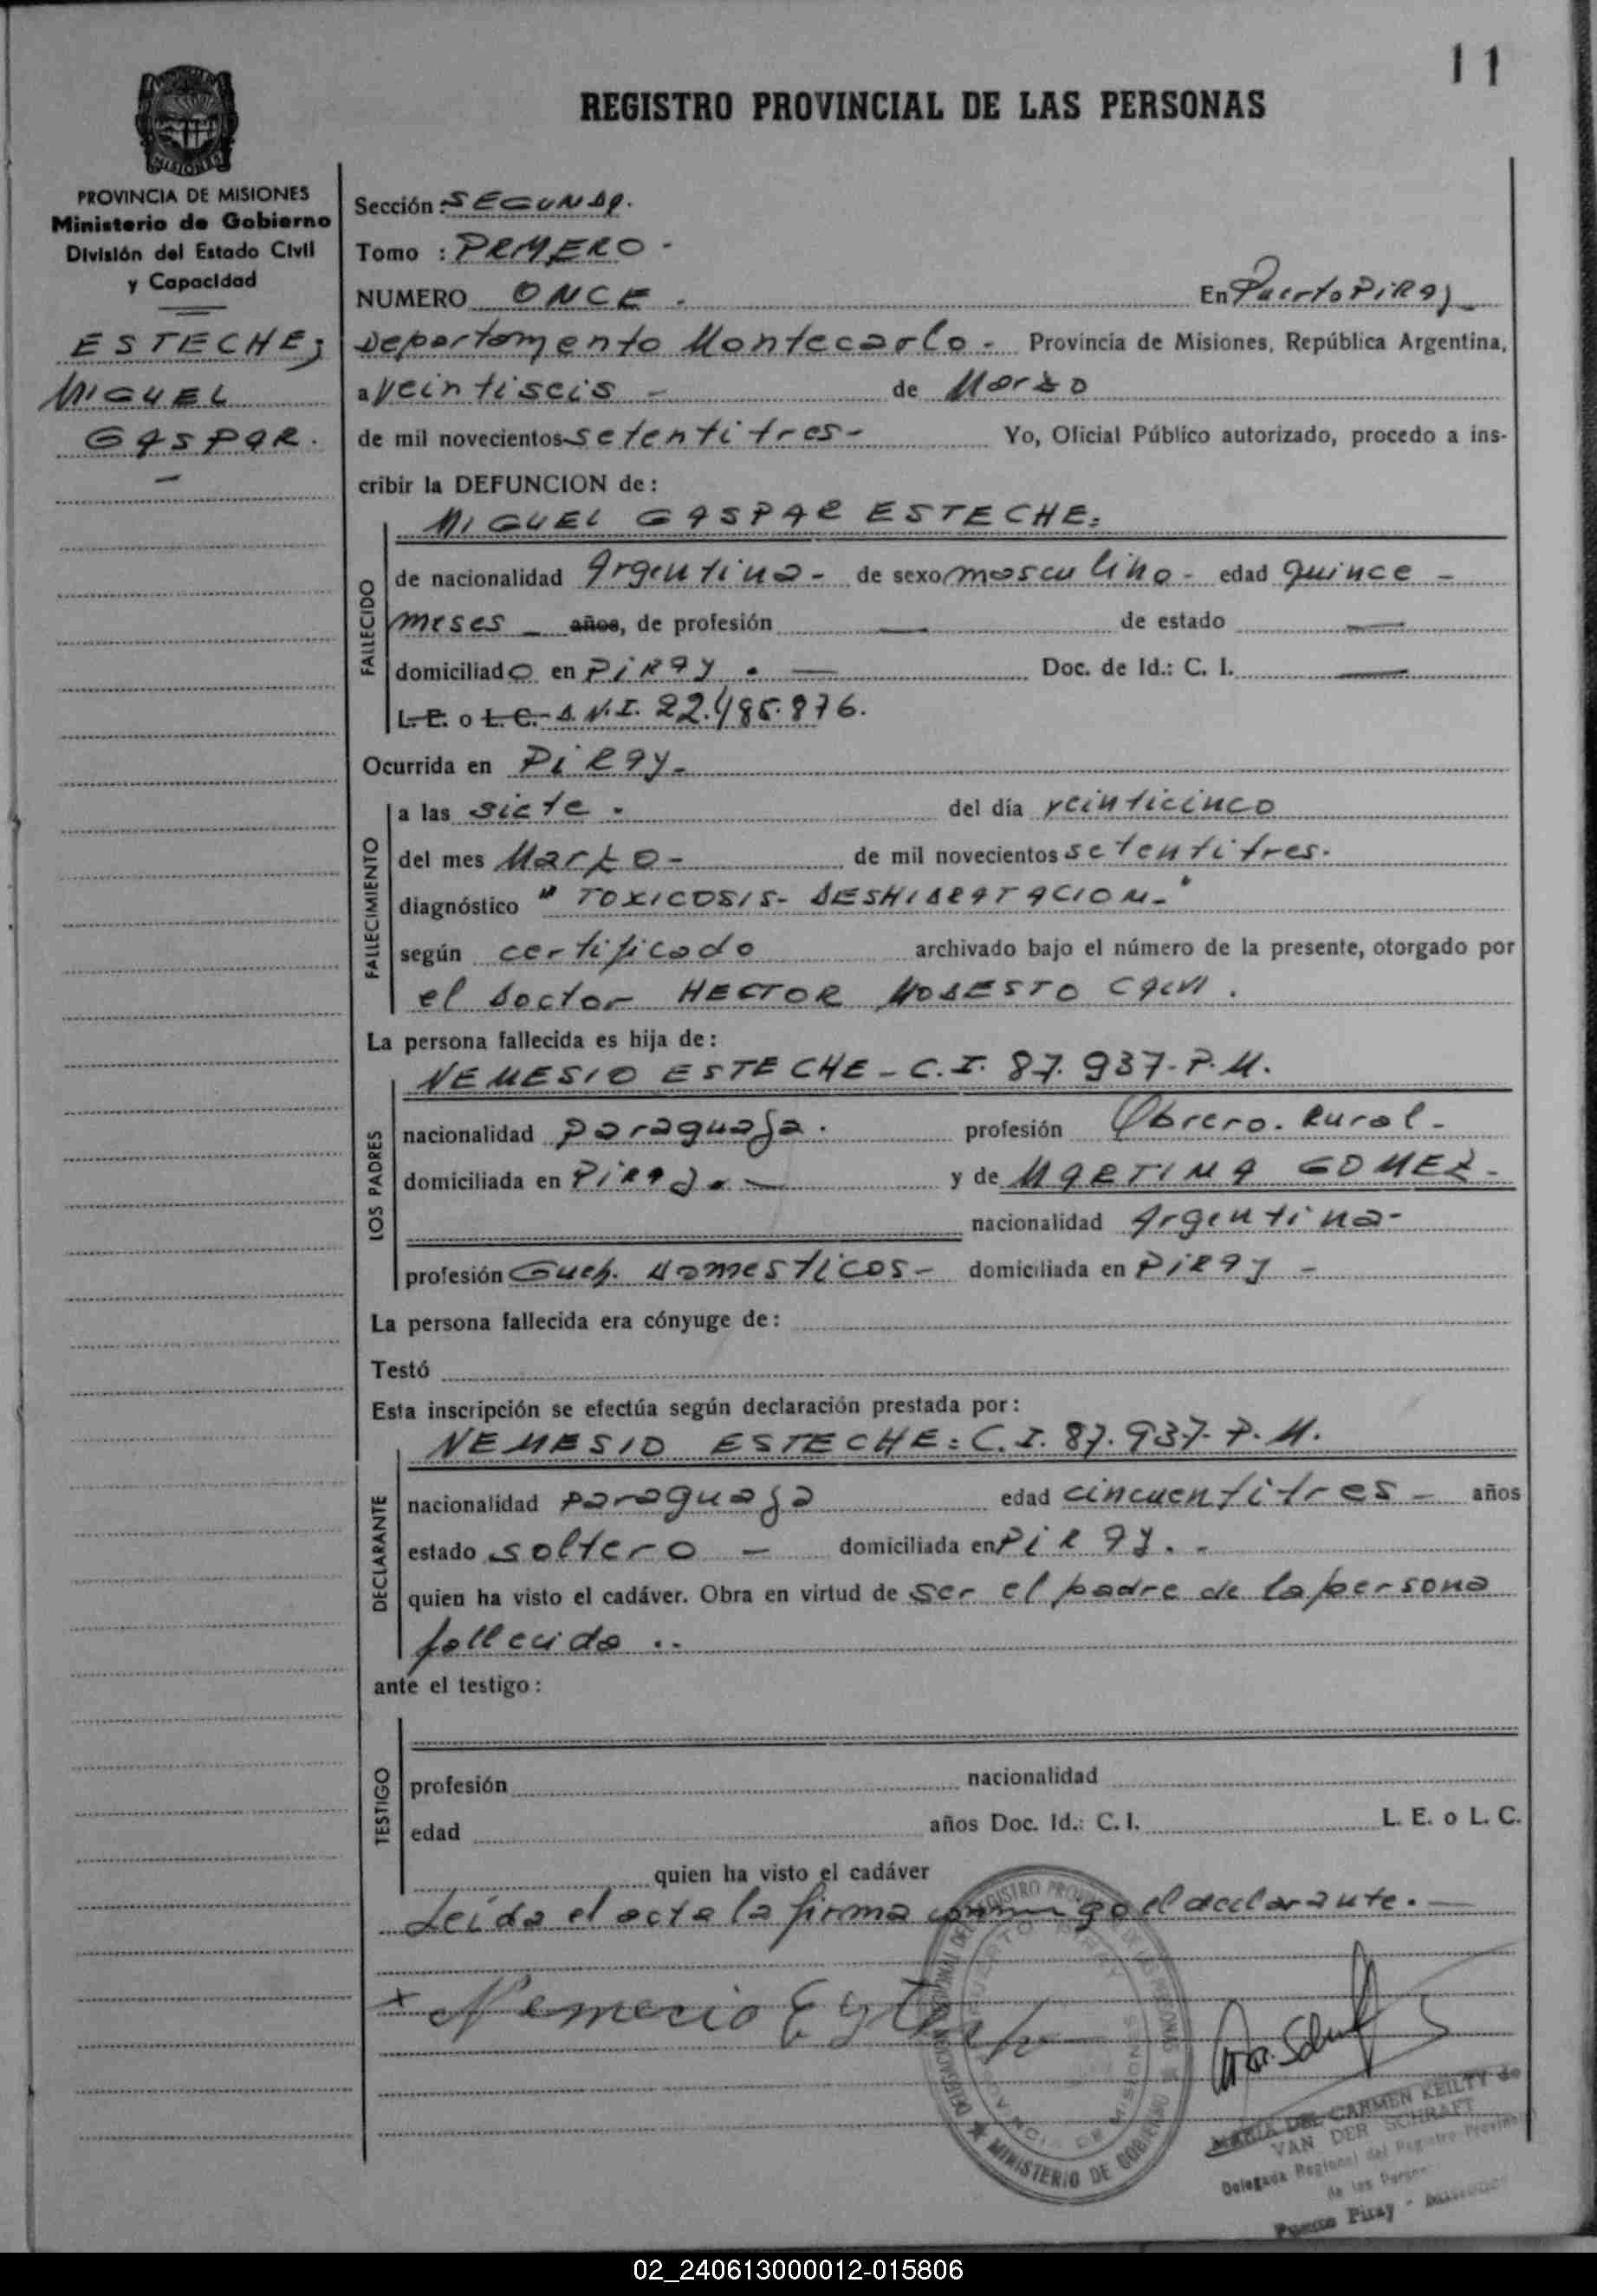 11
REGISTRO PROVINCIAL DE LAS PERSONAS
MISIONES
PROVINCIA DE MISIONES
Ministerio de Gobierno
División del Estado Civil
y Capacidad
ESTECHE,
MIGUEL
GASPAR.
Sección: SEGUNDA.
Tomo : PRMERO -
NUMERO ONCE . En Puerto PiRAy
Departamento Montecarlo - Provincia de Misiones, República Argentina,
a veintiseis - de Marzo
de mil novecientos setentitres - Yo, Oficial Público autorizado, procedo a ins-
cribir la DEFUNCION de:
MIGUEL GASPAR ESTECHE:
FALLECIDO
de nacionalidad Argentina - de sexo masculino - edad quince -
meses - años, de profesión — de estado —
domiciliado en PiRAy . — Doc. de Id.: C. I. —
L. E. o L. C. - D.N.I. 22.485.876.
Ocurrida en PiRAy -
FALLECIMIENTO
a las siete . del día veinticinco
del mes Marzo - de mil novecientos setentitres.
diagnóstico " TOXICOSIS - DESHIDRATACION - "
según certificado archivado bajo el número de la presente, otorgado por
el Doctor HECTOR MODESTO
La persona fallecida es hija de:
NEMESIO ESTECHE - C.I. 87.937 - P.M.
LOS PADRES
nacionalidad paraguaya . profesión Obrero. Rural -
domiciliada en PiRAy . — y de MARTINA GOMEZ -
nacionalidad Argentina -
profesión Queh. Domesticos - domiciliada en PiRAy -
La persona fallecida era cónyuge de:
Testó
Esta inscripción se efectúa según declaración prestada por:
NEMESIO ESTECHE: C.I. 87.937 - P.M.
DECLARANTE
nacionalidad paraguaya edad cincuentitres - años
estado soltero - domiciliada en PiRAy . -
quien ha visto el cadáver. Obra en virtud de ser el padre de la persona
fallecida ..
ante el testigo:
TESTIGO
profesión nacionalidad
edad años Doc. Id.: C. I. L. E. o L. C.
quien ha visto el cadáver
Leida el acta la firma conmigo el declarante . —
x Nemecio Esteche
MARIA DEL CARMEN KEILTY de
VAN DER SCHRAFT
Delegada Regional del Registro Provincial
de las Personas
Puerto Piray - Misiones
MINISTERIO DE GOBIERNO
PROVINCIA DE MISIONES
02_240613000012-015806